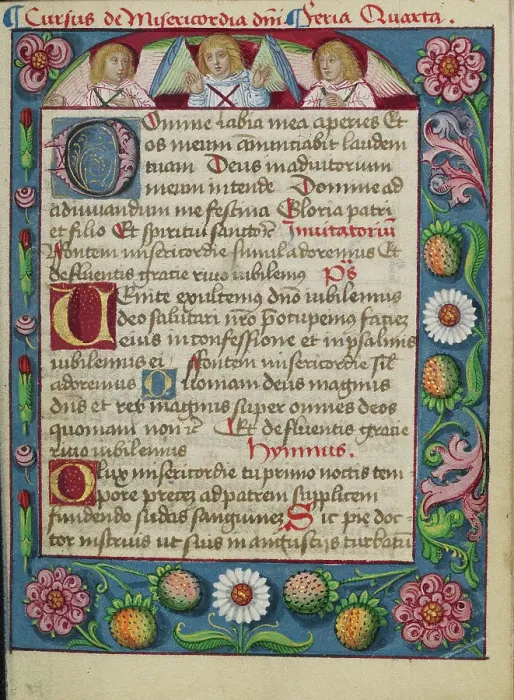 Cursus de Misericordia dm̄i Feria Quarta.
Domine labia mea aperies Et
os meum annunciabit laudem
tuam Deus in adiutorium
meum intende Domine ad
adiuuandum me festina Gloria patri
et filio Et spiritui sancto ꝛc̄ Inuitatoriū
Fontem misericordie simul adoremus Et
defluentis gratie riuo iubilemus Ps̄
Uenite exultemus dn̄o iubilemus
deo salutari nr̄o p̄ocupemus faciez
eius in confessione et in psalmis
iubilemus ei Fontem misericordie sil̄
adoremus Q uoniam deus magnus
dn̄s et rex magnus super omnes deos
quoniam non ꝛc̄ Et defluentis gratie
riuo iubilemus Hymnus.
O lux misericordie tu primo noctis tem
pore precez ad patrem supplicem
fundendo sudas sanguinez Sic pie doc-
tor instruis ut suis in angustijs turbatū